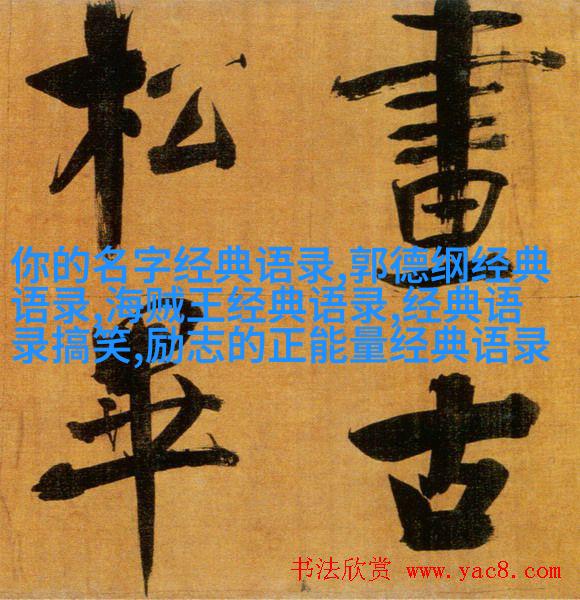 畫古
松
你的名字经典语录,郭德纲经典
语录,海贼王经典语录,经典语
录搞笑,励志的正能量经典语录
书法欣赏 www.yac8.com